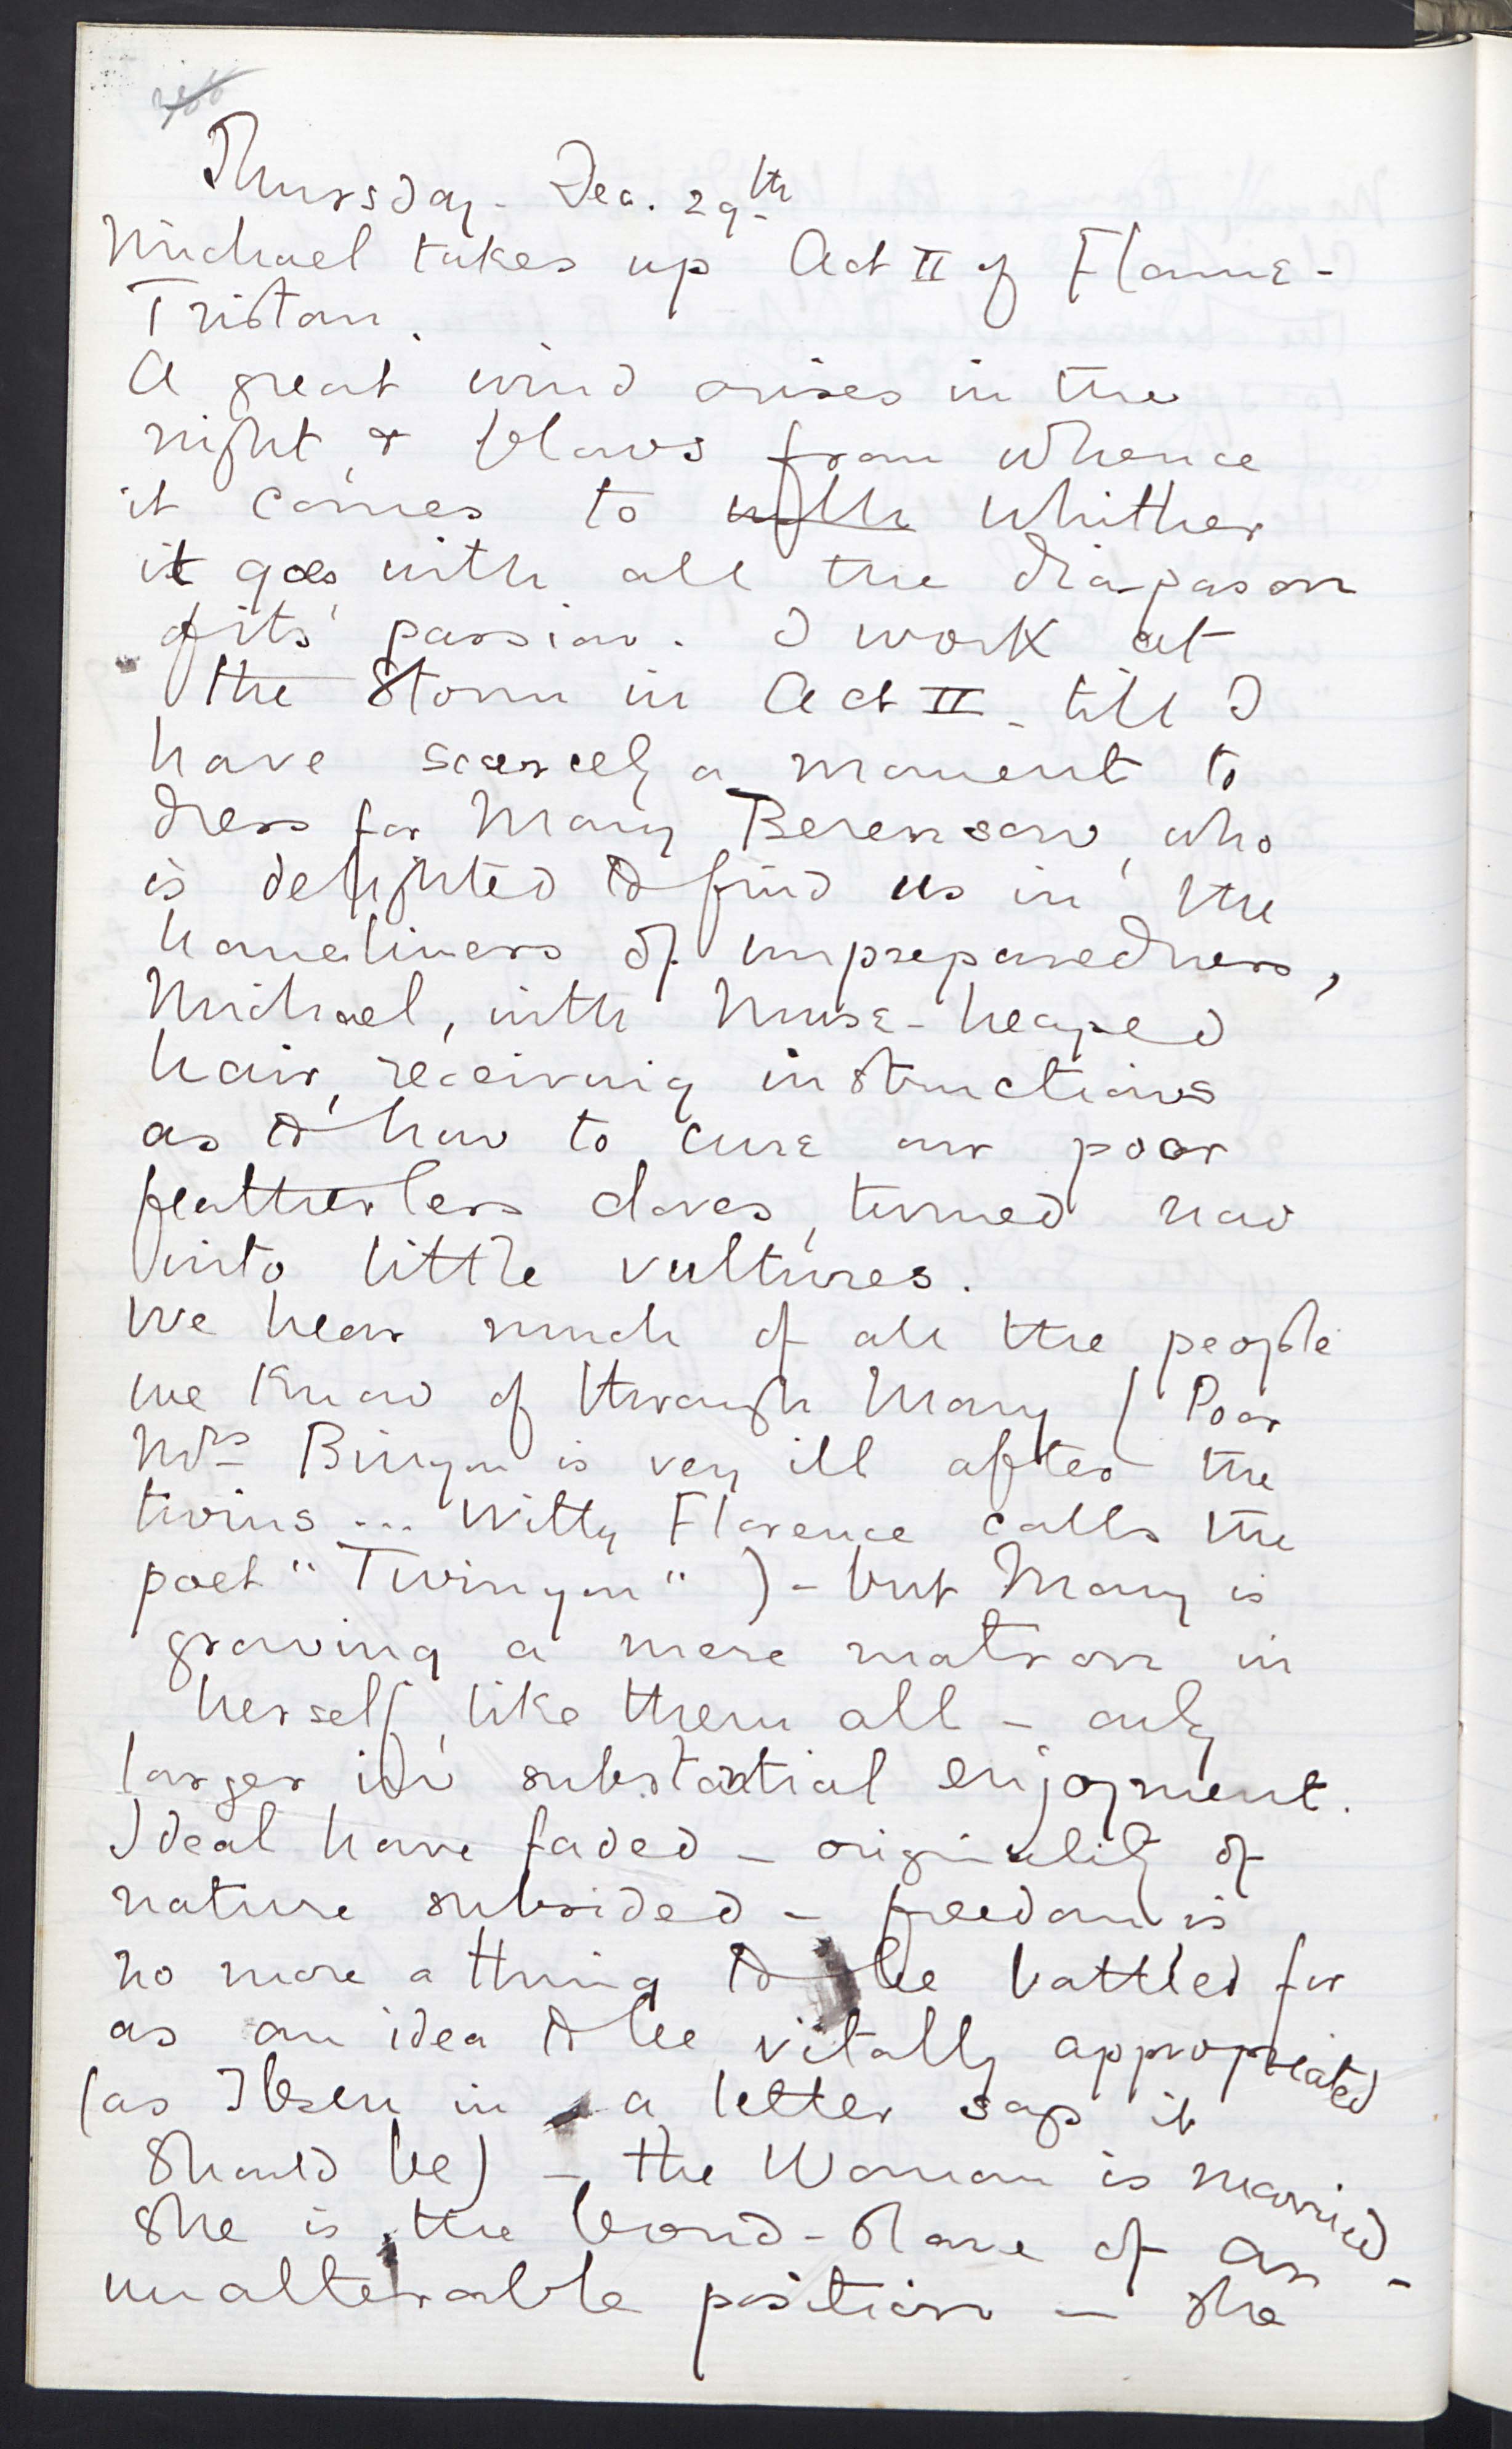 Thursday - Dec. 29th
Michael takes up Act II of Flame-
Tristan.
A great wind arises in the
night, & blows from whence
it comes to with whither
it goes, with all the dia-pason
of its passion. I work at
the Storm in Act II - till I
have scarcely a moment to
dress for Mary Berenson, who
is delighted to find us in the
homeliness of unpreparedness,
Michael, with Muse-heaped
hair, receiving instructions
as to how to cure our poor
featherless doves, turned now
into little vultures.
We hear much of all the people
we know of through Mary (Poor
Mrs Binyon is very ill after the
twins ... Witty Florence calls the
poet "Twinyon") - but Mary is
growing a mere matron in
herself, like them all - only
larger in substantial enjoyment.
Ideal have faded - originality of
nature subsided - freedom is
no more a thing to be battled for
as an idea to be vitally appropriated
(as Ibsen in a letter says it
should be) - the Woman is married -
she is the bond-slave of an
unalterable position - she